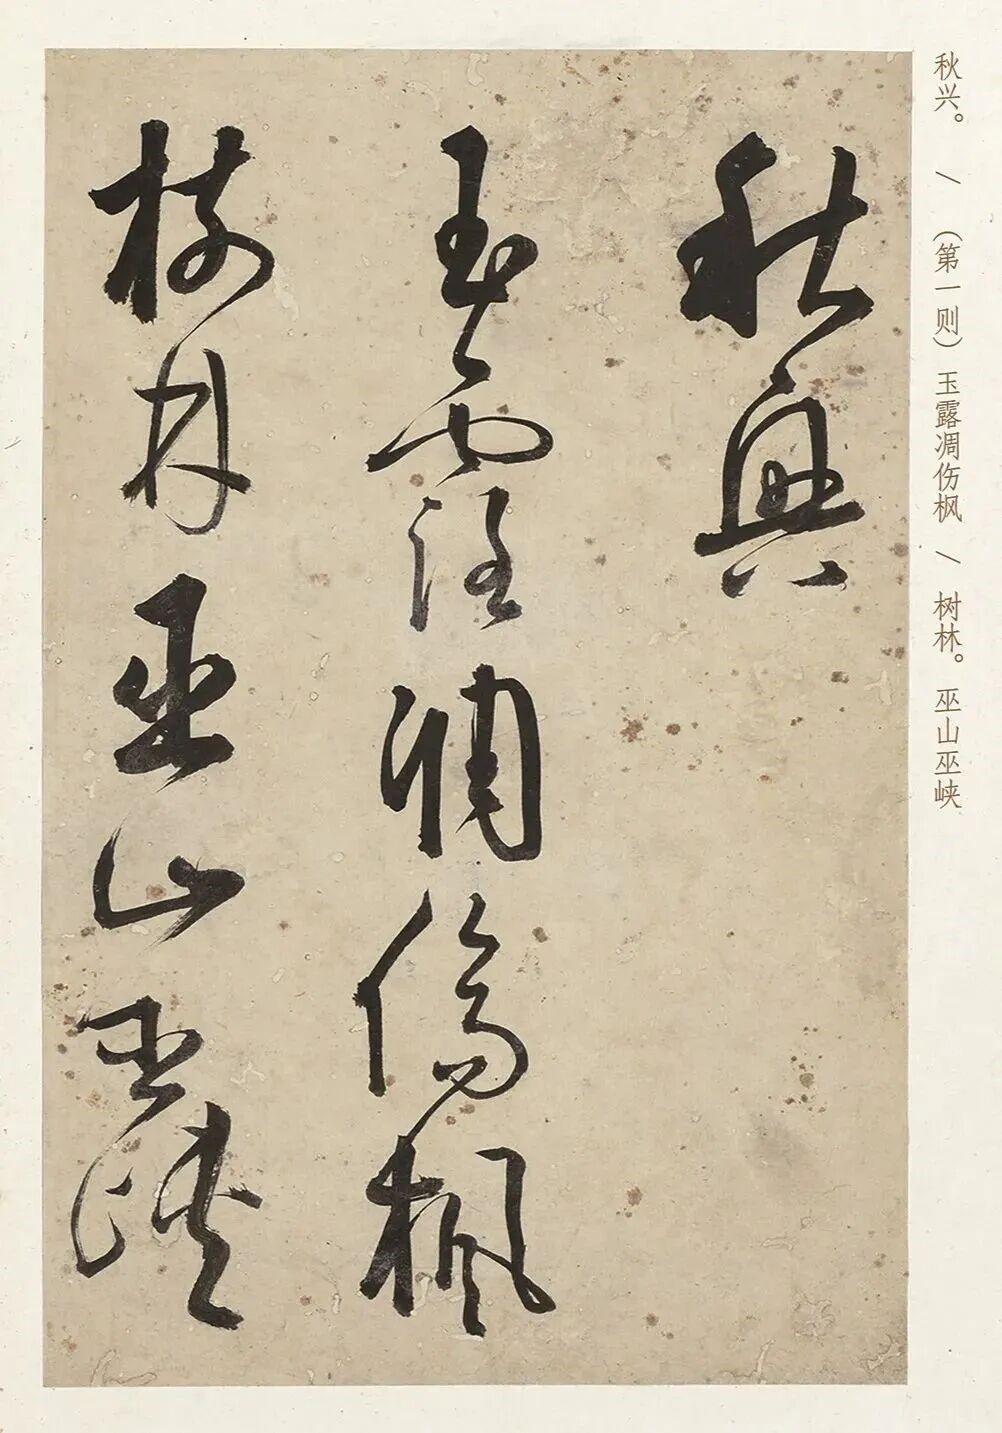 秋兴。 / （第一则）玉露凋伤枫 / 树林。巫山巫峡
秋興
玉露凋傷楓
樹林巫山巫峽